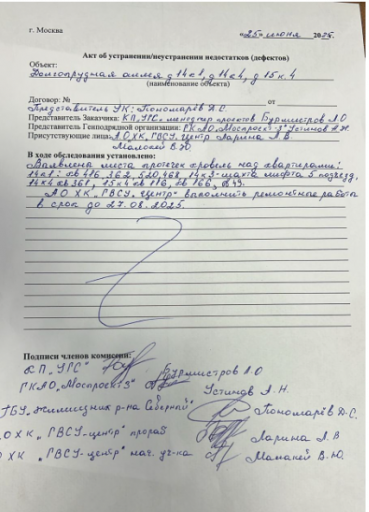 г. Москва
«25» июня 2025.
Акт об устранении/неустранении недостатков (дефектов)
Объект:
Долгопрудная аллея д 14к1, д 14к4, д 15к.4
(наименование объекта)
Договор: № от
Представитель УК: Пономарёв Д.С.
Представитель Заказчика: КП „УГС" менеджер проектов Бурмистров Л О
Представитель Генподрядной организации: ГК АО „Моспроект-3" Устинов А.Н.
Присутствующие лица: АО ХК „ГВСУ-Центр" Ларина Л.В.
В.Ю
В ходе обследования установлено:
Выявлены места протечек кровель над квартирами:
14к1: кв 416, 362, 520, 468, 14к3-шахта лифта 5 подъезд,
14к4 кв 361, 15к4 кв 116, кв 166,
АО ХК „ГВСУ-Центр" выполнить ремонтные работы
в срок до 27.08.2025.
Подписи членов комиссии:
КП „УГС" Бурмистров Л О
ГК АО „Моспроект-3" Устинов А.Н.
ГБУ „Жилищник р-на Северный" Пономарёв Д.С.
АО ХК „ГВСУ-центр" прораб Ларина Л.В
АО ХК „ГВСУ-центр" нач. уч-ка В.Ю.